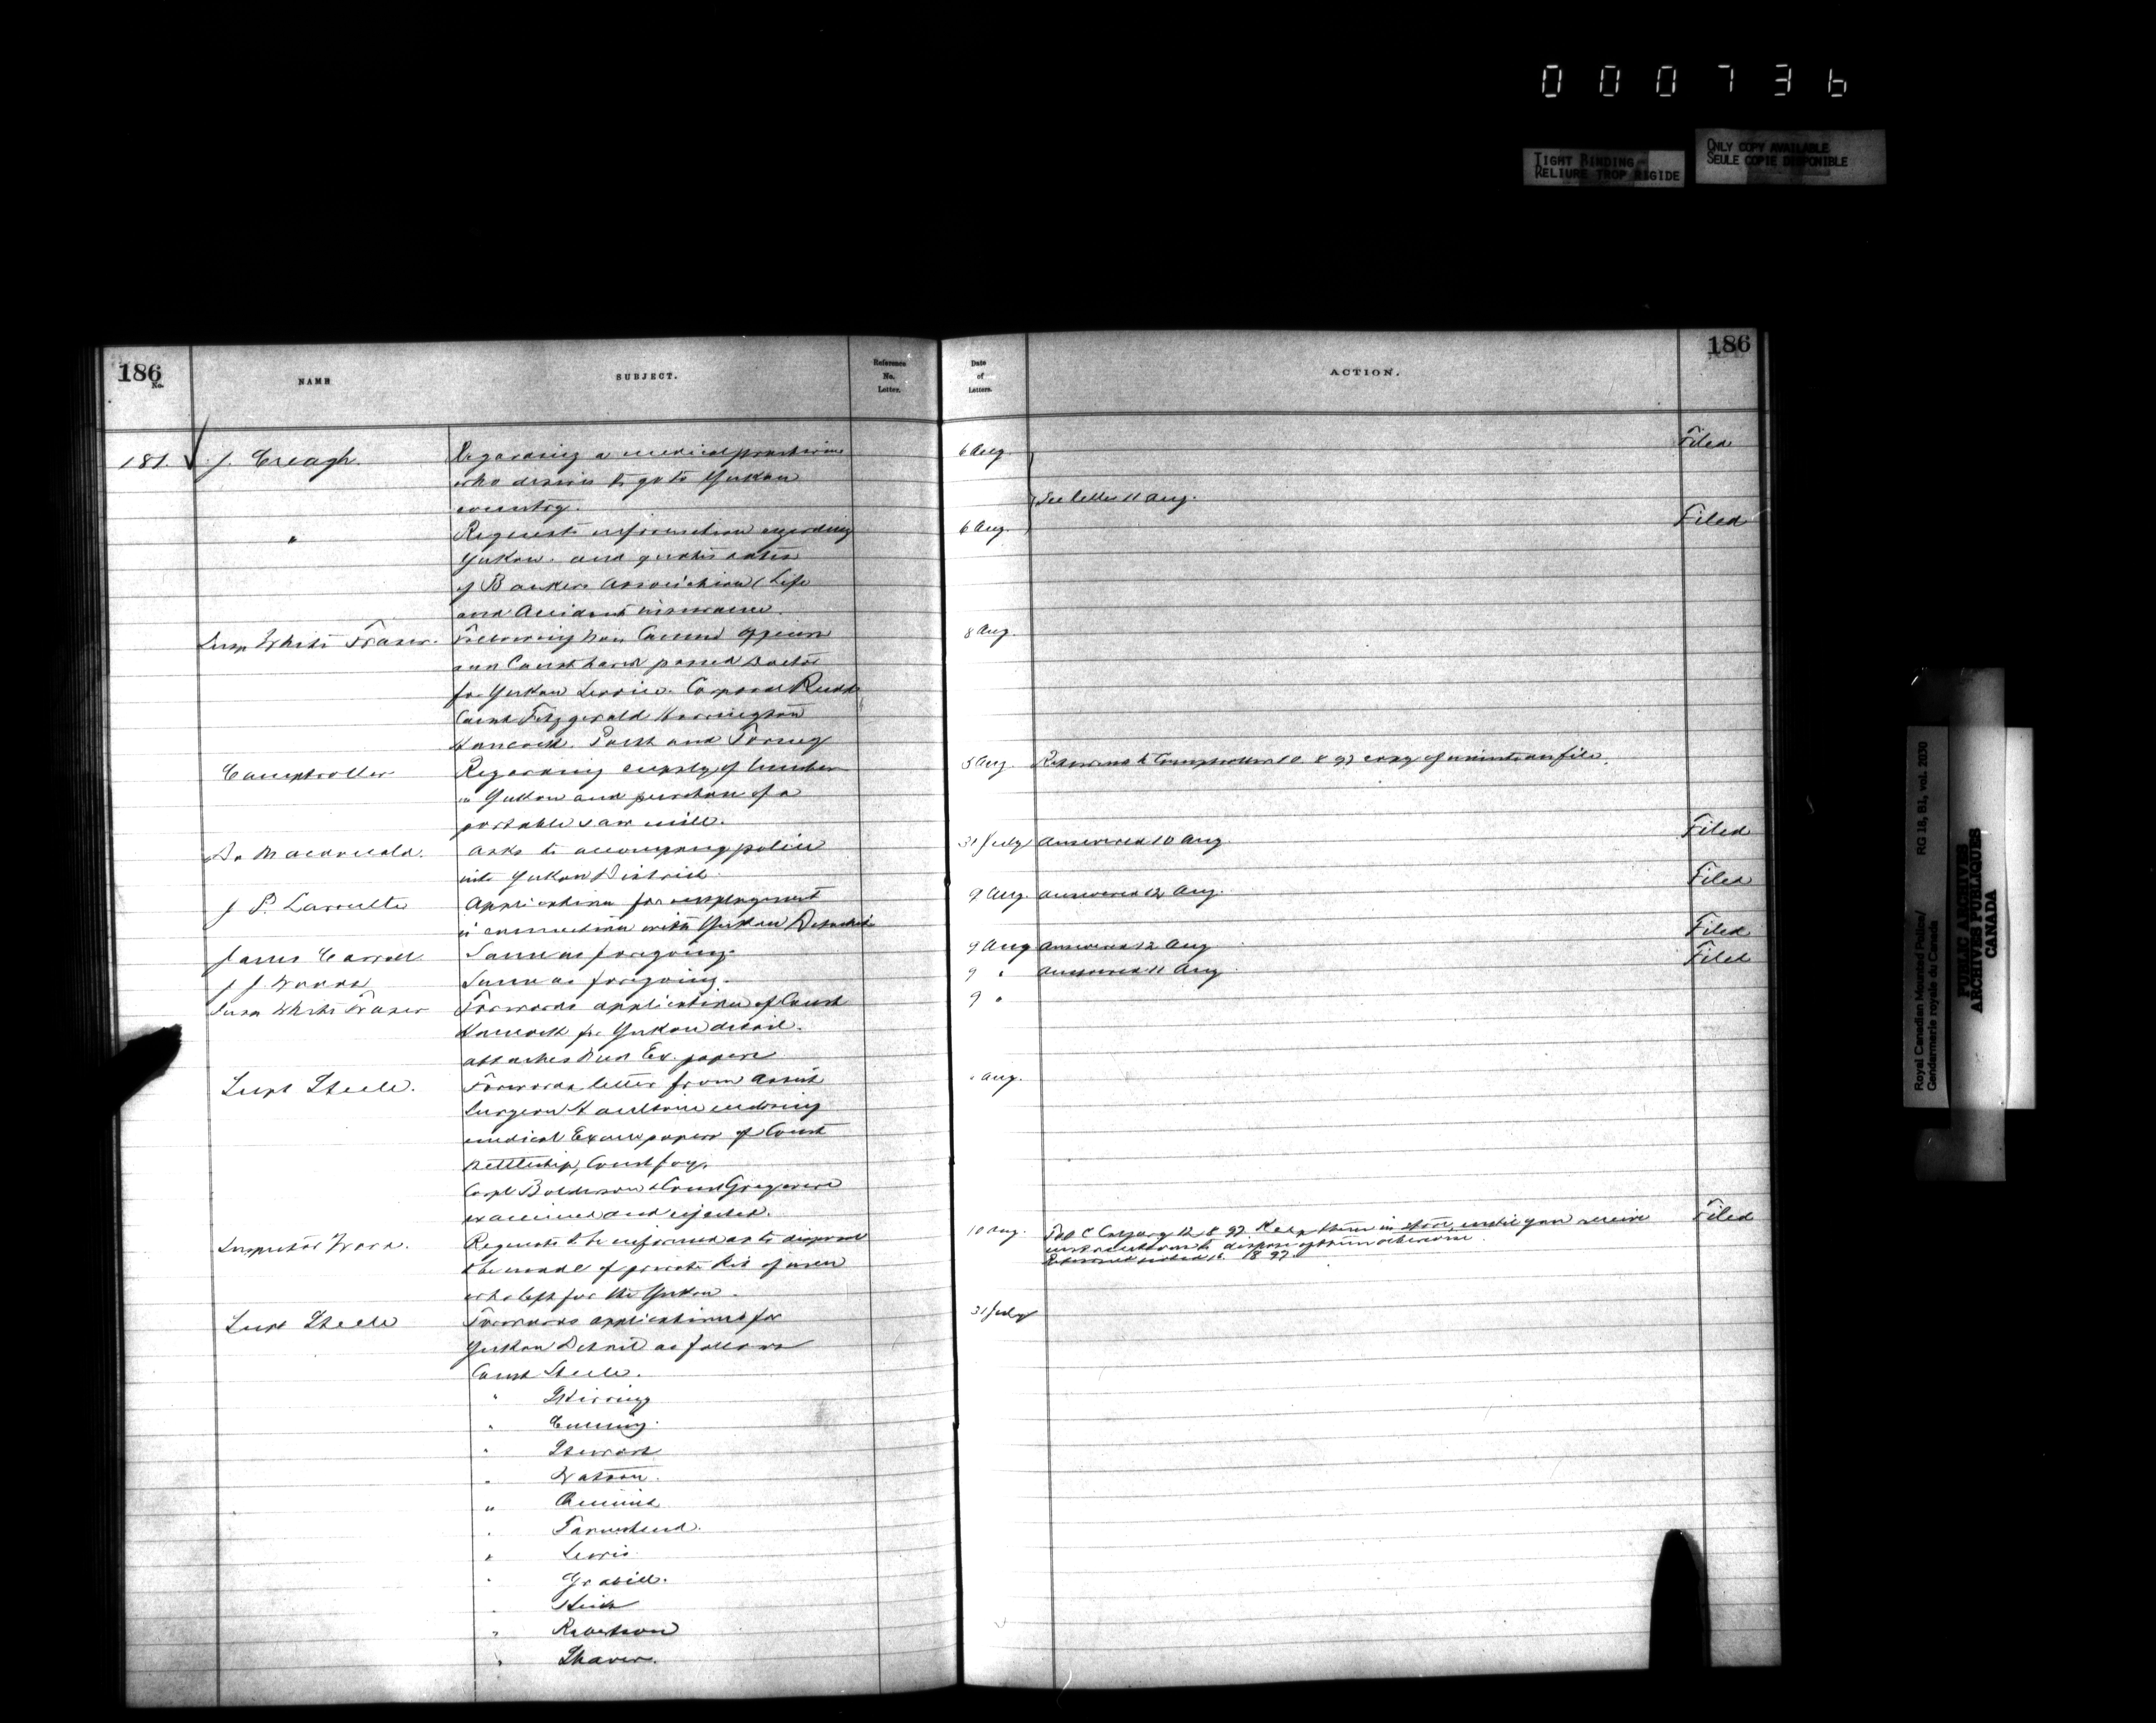 000736
TIGHT BINDING
RELIURE TROP RIGIDE
ONLY COPY AVAILABLE
SEULE COPIE DISPONIBLE
186
No.
NAME
SUBJECT.
Reference
No.
Letter.
Date
of
Letters.
ACTION.
186
181. J. Creagh. Regarding a medical practitioner 6 Aug. Filed
who desires to go to Yukon
country. See letter 11 Aug.
" Requests information regarding 6 Aug. Filed
Yukon. and quotes rates
of Bankers Association (Life
and Accident insurance.
Insp White Fraser. Following Non Commd officers 8 Aug.
and Const have passed Doctor
for Yukon Service. Corporal Rudd
Const Fitzgerald Harrington
Hancock. Part and Tormey
Comptroller Regarding supply of lumber 5 Aug. Returned to Comptroller 8 97 copy of minute on file.
in Yukon and purchase of a
portable saw mill.
Macdonald. Asks to accompany police 31 July Answered 10 Aug. Filed
into Yukon District.
J P. Application for employment 9 Aug. Answered 12 Aug. Filed
in connection with Yukon
James Carroll Same as foregoing. 9 Aug Answered 12 Aug Filed
J J Same as foregoing. 9 " Answered 11 Aug Filed
Insp White Fraser Forwards application of Const 9 "
Hancock for Yukon detail.
attaches Med Ex. papers
Supt Steele. Forwards letter from Assist Aug.
Surgeon Haultain enclosing
medical Exam papers of Const
Nettleship, Const Joy,
Corpl Balderson & Const Gregg were
examined and rejected.
Inspector Wood. Requests to be informed as to disposal 10 Aug. Calgary 12.8.97 Keep them in store, until you receive Filed
to be made of private kit of men instructions to dispose of them otherwise.
who left for the Yukon. 8 97
Supt Steele Forwards applications for 31 July
Yukon Detail as follows
Const Steele.
" Stirring
" Cumming.
" Stewart
" Watson.
"
" Townshend.
" Lewis
" Grabill.
"
" Robertson
" Shaver.
Royal Canadian Mounted Police/
Gendarmerie royale du Canada
RG 18, B1, vol. 2030
PUBLIC ARCHIVES
ARCHIVES PUBLIQUES
CANADA